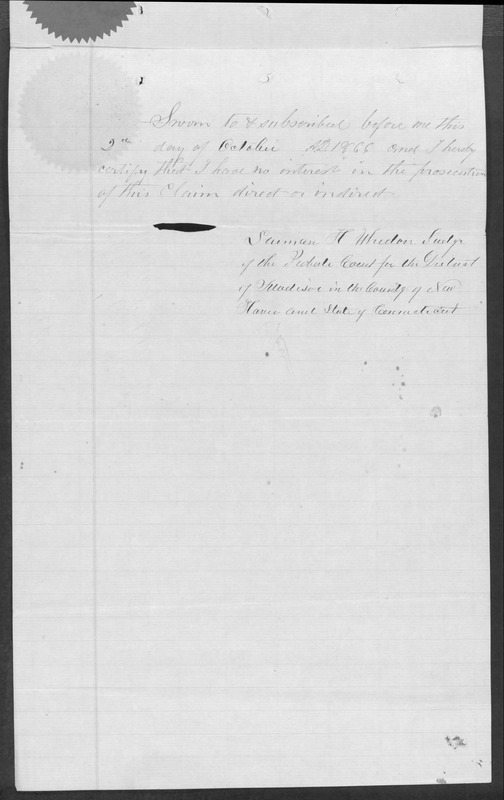 Sworn to & subscribed before me this
2nd day of October AD 1866 and I hereby
certify that I have no interest in the prosecution
of this Claim direct or indirect
H Judge
of the Probate Court for the District
of Madison in the County of New
Haven and State of Connecticut